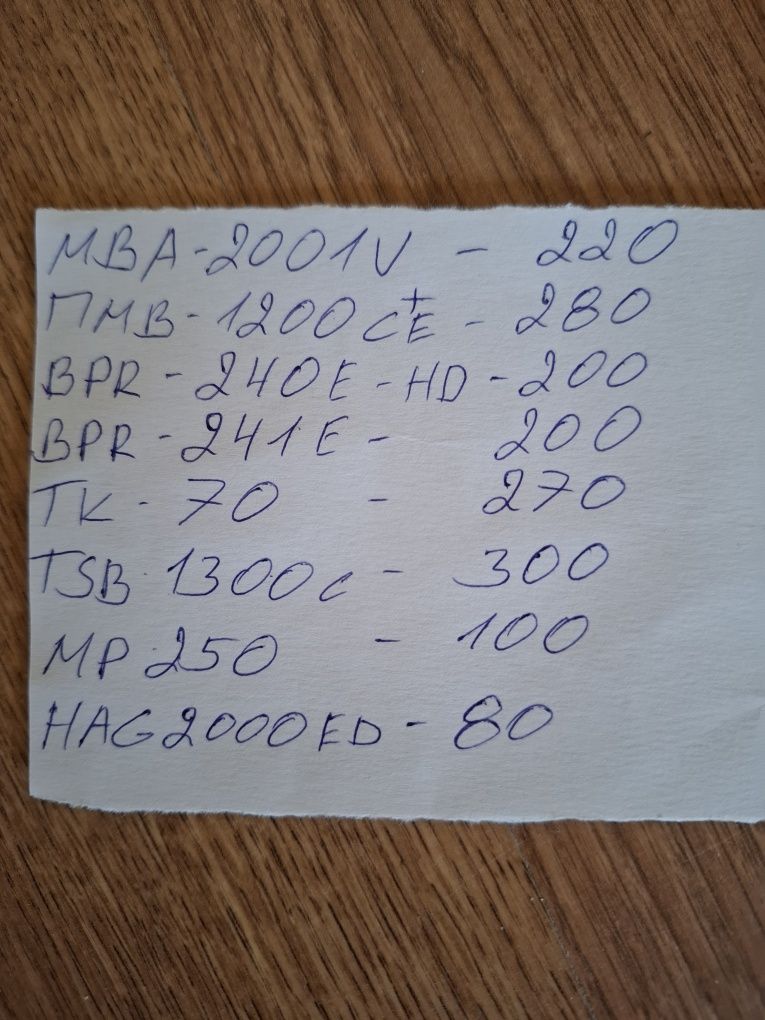 МВА-2001V - 220
ПМВ-1200CE+ - 280
BPR-240E-HD-200
BPR-241E- 200
ТК-70 - 270
TSB-1300c - 300
MP-250 - 100
HAG2000ED- 80